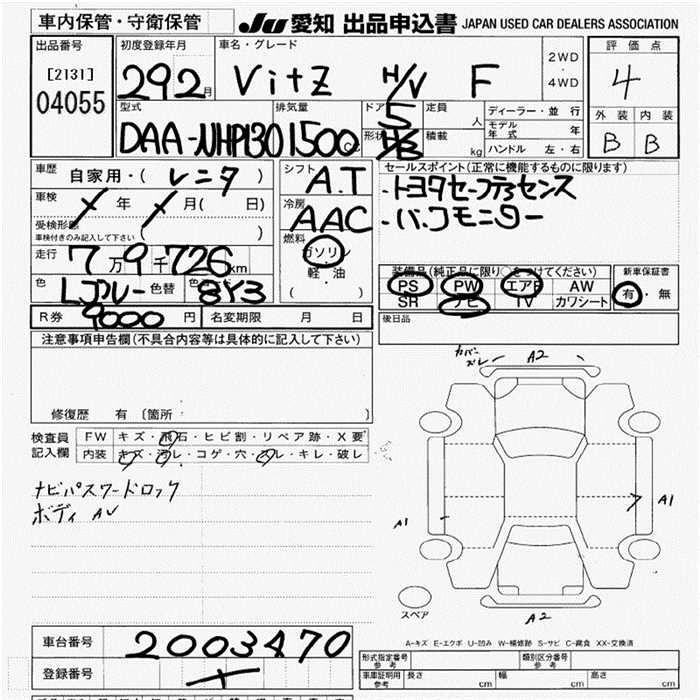 車内保管・守衛保管
JU 愛知 出品申込書 JAPAN USED CAR DEALERS ASSOCIATION
出品番号
[2131]
04055
初度登録年月
292月
車名・グレード
Vitz H/V F
2WD
・
4WD
評価点
4
外装 内装
B B
型式
DAA-NHP130
排気量
1500
ドア
5
形状
定員
人
積載
kg
ディーラー・並行
モデル年式 年
ハンドル 左・右
車歴
自家用・(レンタ)
車検
年 月(日)
受検形態
車検付きのみ記入して下さい( )
走行
7万9千726km
色
L.ブルー
色替
色No.
8Y3
シフト
A.T
冷房
AAC
燃料
ガソリン
軽・油
( )
セールスポイント(正常に機能するものに限ります)
・トヨタセーフティセンス
・バックモニター
装備品(純正品に限り○をつけてください)
PS PW エアB AW
SR ナビ TV カワシート
新車保証書
有・無
R券 9000円
名変期限 月 日
後日品
注意事項申告欄(不具合内容等は具体的に記入して下さい)
修復歴 有〔箇所 〕
検査員記入欄
FW キズ・飛石・ヒビ割・リペア跡・X要
内装 キズ・汚レ・コゲ・穴・スレ・キレ・破レ
ナビパスワードロック
ボディ AU
カバーズレ
A2
A1
A1
スペア
A2
A-キズ E-エクボ U-凹み W-補修跡 S-サビ C-腐食 XX-交換済
車台番号
2003470
登録番号
形式指定番号
参考
類別区分番号
参考
車庫証明用
参考
長さ cm
幅 cm
高さ cm